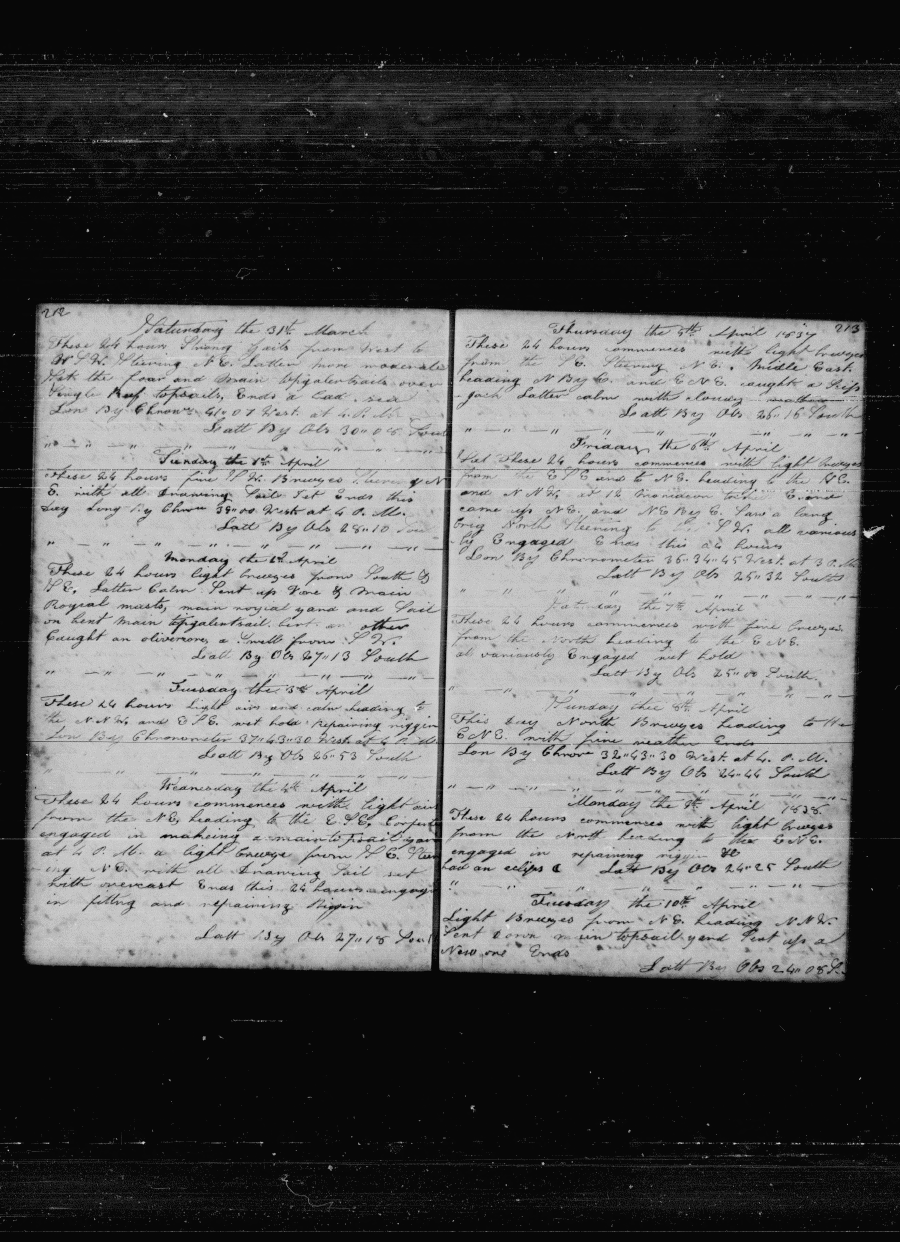 212
Saturday the 31st March
These 24 hours Strong Gails from West to
W S W. Steering N E. Latter more moderate
Set the four and main topgalensails over
Single Reef topsails, Ends a bad sea
Lon By Chron 41"07 West at 4 P.M.
Latt By Obs 30"06 South
Sunday the 1st April
These 24 hours fine Breezes Steering N
E. with all drawing Sails Set Ends this
day Long By Chron 38"00 West at 4 P. M.
Latt By Obs 28"10
Monday the 2d April
These 24 hours light breezes from South &
S E. Latter Calm Sent up Fore & Main
Royeal masts, main royeal yard and Sail
on bent main topgalentsail. bent an other
Caught an from S W.
Latt By Obs 27"13 South
Tuesday the 3th April
These 24 hours light airs and calm heading to
the N N W and E S E. wet hold repairing riggin
Lon By Chronometer 37"43"30 West at 4 P M.
Latt By Obs 26"53 South
Wednesday the 4th April
These 24 hours commences with light airs
from the N E. heading to the E S E. Carpenter
engaged in makeing a maintopsail yard
at 4 P. M. a light breeze from S E. Steer
-ing N E. with all drawing Sail set
with overcast Ends this 24 hours engaged
in fitting and repairing Riggin
Latt By Obs 27"18 South
213
Thursday the 5th April 1837
These 24 hours commences with light breezes
from the S E. Steering N E. Middle East.
heading N By E. and E N E. caught a Skip
-jack Latter calm with cloudy weather
Latt By Obs 26"16 South
Friday the 6th April
These 24 hours commences with light breezes
from the E S E and E N E. heading to the N E.
and N N W. at 12 Meridian E. and
came up N E. and N E By E. Saw a large
brig North Steering to S W. all various
-ly Engaged Ends this 24 hours
Lon By Chronometer 36"34"45 West. at 3 P. M.
Latt By Obs 25"32 South
Saturday the 7th April
These 24 hours commences with fine breezes
from the North heading to the E N E.
all variously Engaged wet hold
Latt By Obs 25"00 South.
Sunday the 8th April
This day North Breezes heading to the
E N E. with fine weather Ends
Lon By Chron 32"43"30 West. at 4. P. M.
Latt By Obs 24"44 South
Monday the 9th April 1838.
These 24 hours commences with light breezes
from the North heading to the E N E.
engaged in repairing riggin
had an eclips Latt By Obs 24"25 South
Tuesday the 10th April
Light Breezes from N E. heading N N W.
Sent down main topsail yard Sent up a
New one Ends
Latt By Obs 24"08 S.